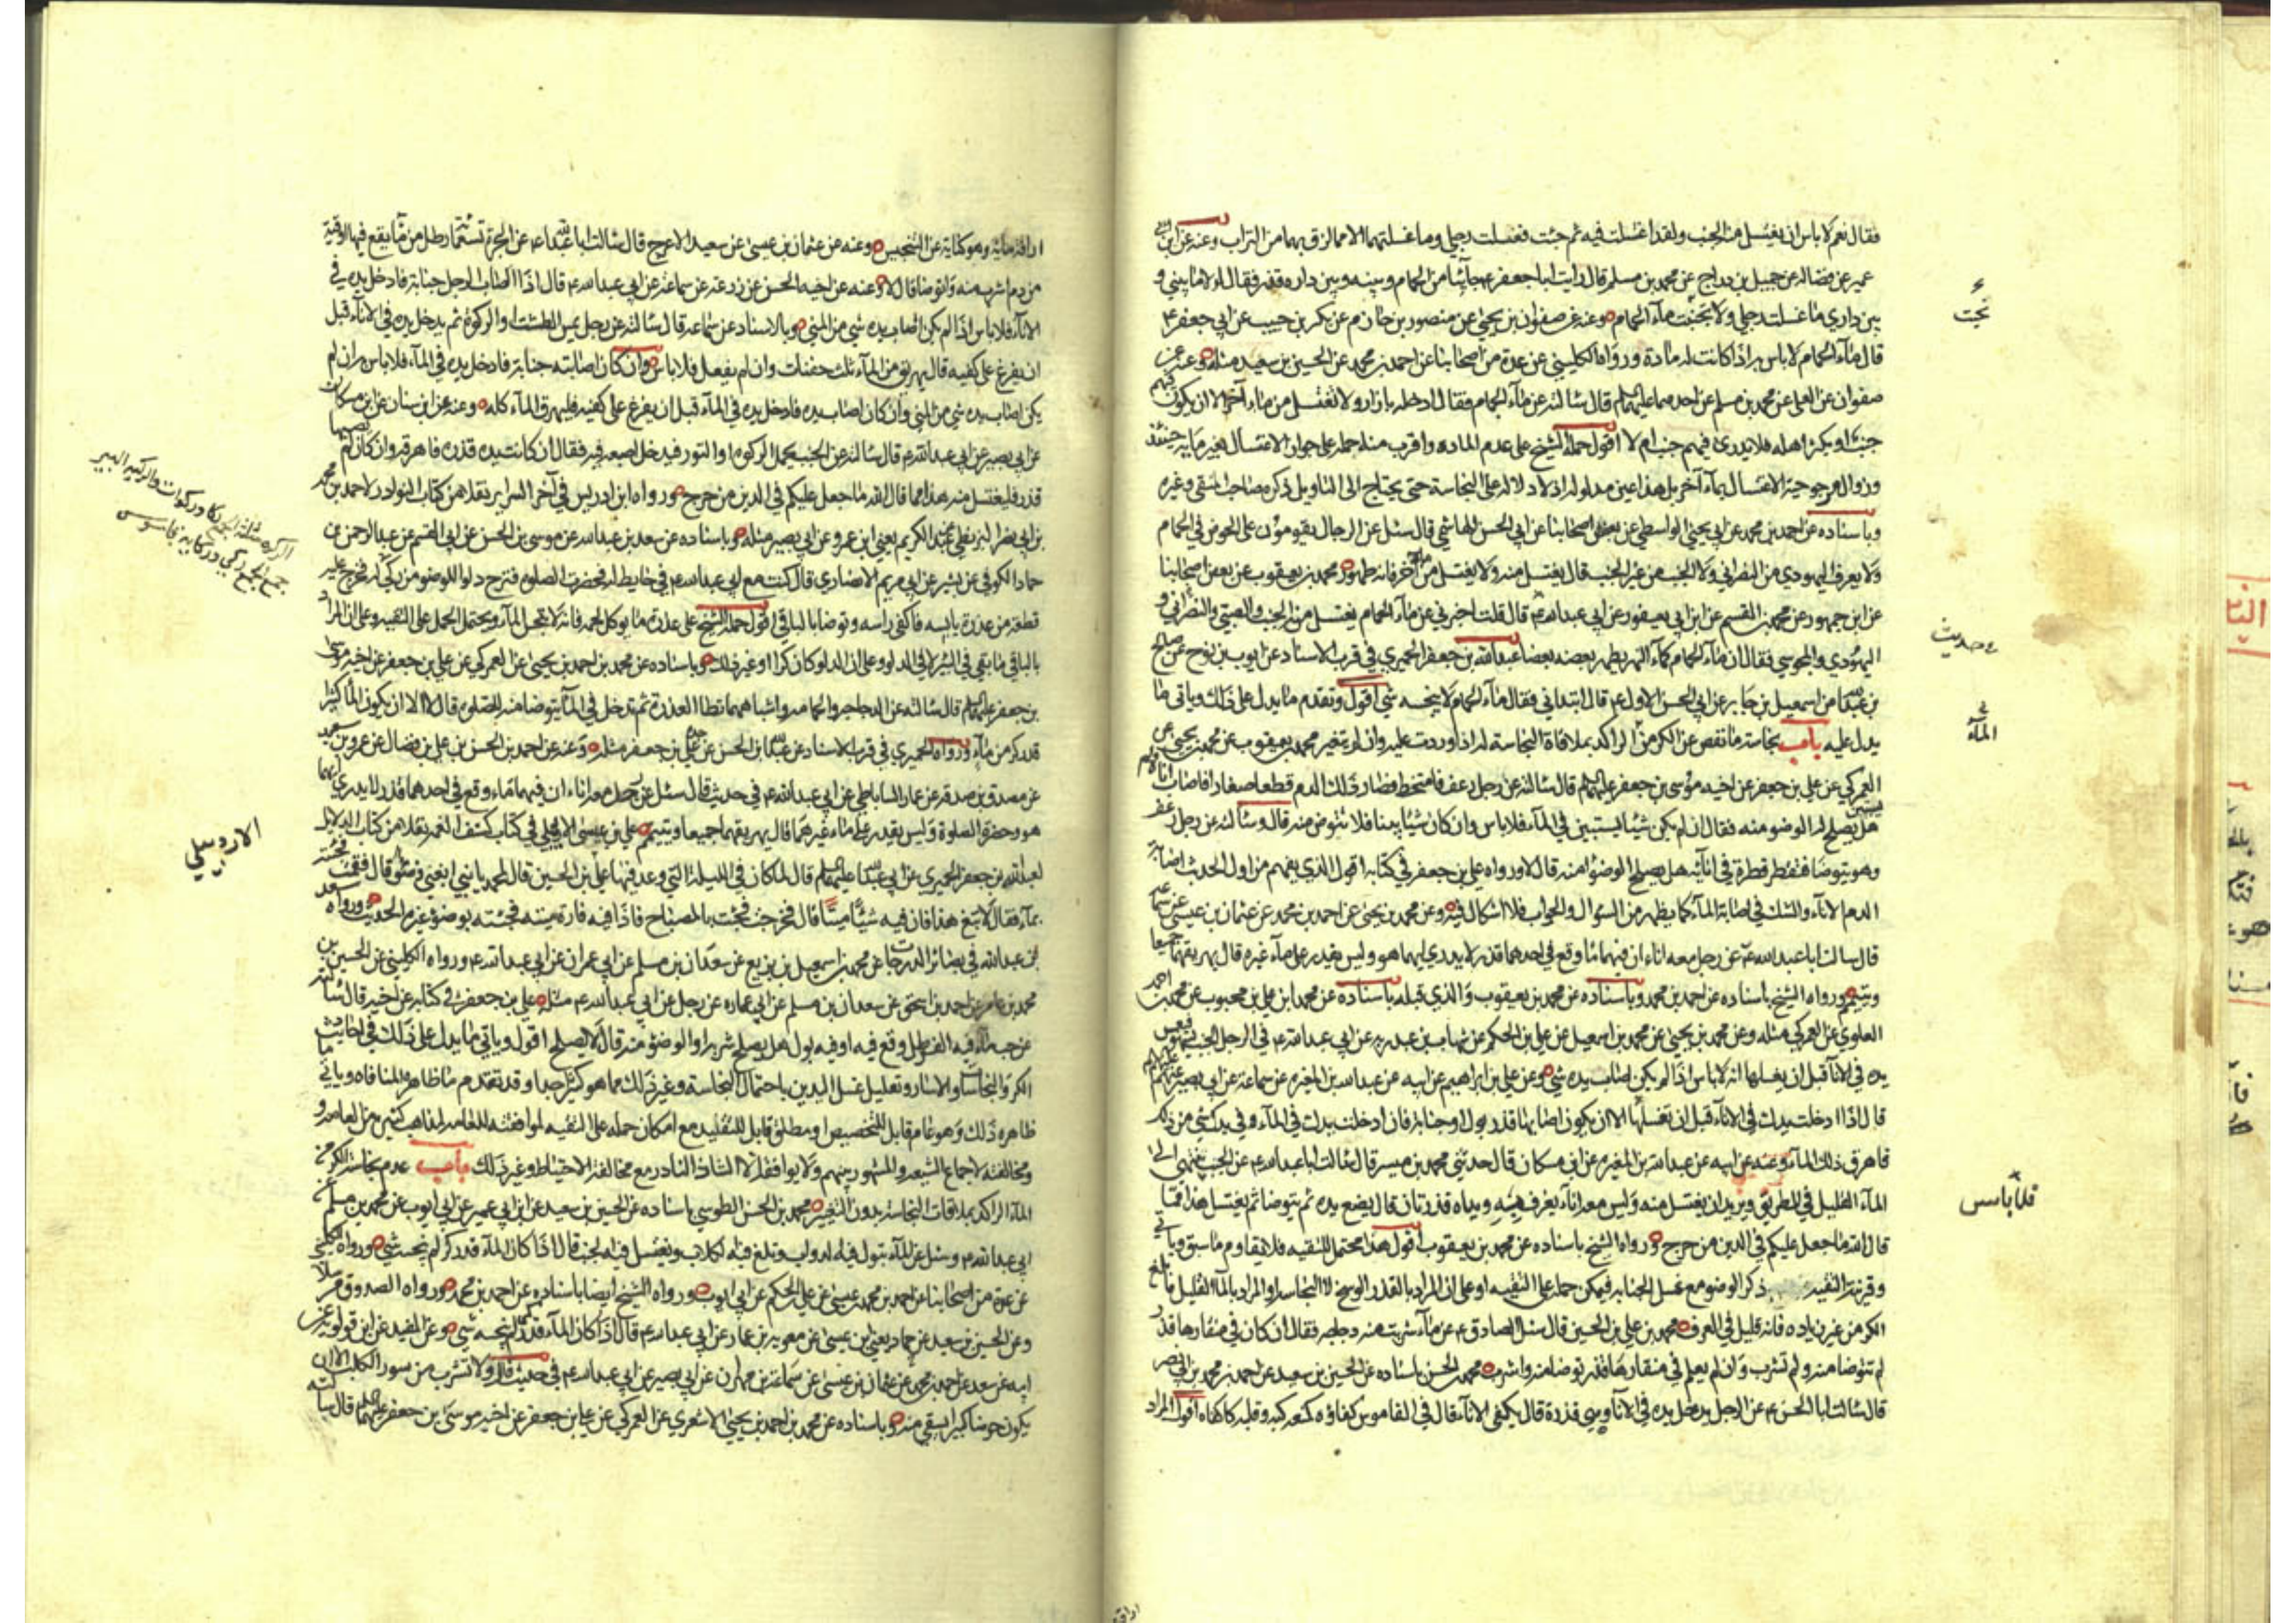 فقال نعم لا باس ان يغتسل منه الجنب ولقد اغتسلت فيه ثم جئت فغسلت رجلي وما غسلتهما الا مما لزق بهما من التراب وعنه عن ابن ابي
عمير عن فضالة عن جميل بن دراج عن محمد بن مسلم قال رايت ابا جعفر ع جائيا من الحمام وبينه وبين داره قذر فقال لولا ما بيني و
بين داري ما غسلت رجلي ولا تجنبت ماء الحمام وعنه عن صفوان بن يحيى عن منصور بن حازم عن بكر بن حبيب عن ابي جعفر ع
قال ماء الحمام لا باس به اذا كانت له مادة ورواه الكليني عن عدة من اصحابنا عن احمد بن محمد عن الحسين بن سعيد مثله وعنه عن
صفوان عن العلا عن محمد بن مسلم عن احدهما عليهما السلم قال سالته عن ماء الحمام فقال ادخله بازار ولا تغتسل من ماء آخر الا ان يكون فيهم
جنب او يكثر اهله فلا يدري فيهم جنب ام لا اقول حمله الشيخ على عدم المادة واقرب منه حمله على جواز الاغتسال بغير مائه حينئذ
وزوال مرجوحية الاغتسال بماء آخر بل هذا عين مدلوله اذ لا دلالة له على النجاسة حتى يحتاج الى التاويل ذكره صاحب المنتقى وغيره
وباسناده عن احمد بن محمد عن ابي يحيى الواسطي عن بعض اصحابنا عن ابي الحسن الهاشمي قال سئل عن الرجال يقومون على الحوض في الحمام
ولا يعرف اليهودي من النصراني ولا الجنب من غير الجنب قال يغتسل منه ولا يغتسل من ماء آخر فانه طهور محمد بن يعقوب عن بعض اصحابنا
عن ابن جمهور عن محمد بن القسم عن ابن ابي يعفور عن ابي عبد الله ع قال قلت اخبرني عن ماء الحمام يغتسل منه الجنب والصبي والنصراني و
اليهودي والمجوسي فقال ان ماء الحمام كماء النهر يطهر بعضه بعضا عبد الله بن جعفر الحميري في قرب الاسناد عن ايوب بن نوح عن صالح
بن عبد الله عن اسمعيل بن جابر عن ابي الحسن الاول ع قال ابتداني فقال ماء الحمام لا ينجسه شي اقول وتقدم ما يدل على ذلك وياتي ما
يدل عليه باب نجاسة ما نقص عن الكر من الراكد بملاقاة النجاسة له اذا وردت عليه وان لم يتغير محمد بن يعقوب عن محمد بن يحيى عن
العمركي عن علي بن جعفر عن اخيه موسى بن جعفر عليهما السلم قال سالته عن رجل رعف فامتخط فصار ذلك الدم قطعا صغارا فاصاب اناءه
هل يصلح له الوضوء منه فقال ان لم يكن شيئا يستبين في الماء فلا باس وان كان شيئا بينا فلا تتوضا منه قال وسالته عن رجل رعف
وهو يتوضا فتقطر قطرة في انائه هل يصلح الوضوء منه قال لا ورواه علي بن جعفر في كتابه اقول الذي يفهم من اول الحديث اصابة
الدم الاناء والشك في اصابة الماء كما يظهر من السؤال والجواب فلا اشكال فيه وعن محمد بن يحيى عن احمد بن محمد عن عثمان بن عيسى عن سماعة
قال سالت ابا عبد الله ع عن رجل معه اناءان فيهما ماء وقع في احدهما قذر لا يدري ايهما هو وليس يقدر على ماء غيره قال يهريقهما جميعا
ويتيمم ورواه الشيخ باسناده عن احمد بن محمد وباسناده عن محمد بن يعقوب والذي قبله باسناده عن محمد بن علي بن محبوب عن محمد بن احمد
العلوي عن العمركي مثله وعن محمد بن يحيى عن محمد بن اسمعيل عن علي بن الحكم عن شهاب بن عبد ربه عن ابي عبد الله ع في الرجل الجنب يسهو فيغمس
يده في الاناء قبل ان يغسلها انه لا باس اذا لم يكن اصاب يده شي وعن علي بن ابراهيم عن ابيه عن عبد الله بن المغيرة عن سماعة عن ابي بصير عنهم
قال اذا ادخلت يدك في الاناء قبل ان تغسلها الا ان يكون اصابها قذر بول او جنابة فان ادخلت يدك في الماء وفي يدك شي من ذلك
فاهرق ذلك الماء وعنه عن ابيه عن عبد الله بن المغيرة عن ابن مسكان قال حدثني محمد بن ميسر قال سالت ابا عبد الله ع عن الجنب ينتهي الى
الماء القليل في الطريق ويريد ان يغتسل منه وليس معه اناء يغرف به ويداه قذرتان قال يضع يده ثم يتوضا ثم يغتسل هذا مما
قال الله ما جعل عليكم في الدين من حرج ورواه الشيخ باسناده عن محمد بن يعقوب اقول هذا محتمل للتقية فلا يقاوم ما سبق وياتي
وقرينة التقية ذكر الوضوء مع غسل الجنابة فيمكن حمله على التقية او على ان المراد بالقذر الوسخ لا النجاسة او المراد بالماء القليل ما بلغ
الكر من غير زيادة فانه قليل في العرف محمد بن علي بن الحسين قال سئل الصادق ع عن ماء شربت منه دجاجة فقال ان كان في منقارها قذر
لم تتوضا منه ولم تشرب وان لم يعلم في منقارها قذر توضا منه واشرب محمد بن الحسن باسناده عن الحسين بن سعيد عن احمد بن محمد بن ابي نصر
قال سالت ابا الحسن ع عن الرجل يدخل يده في الاناء وهي قذرة قال يكفئ الاناء قال في القاموس كفاه كمنعه كبه وقلبه كاكفاه اقول المراد
تحت
ع حديث
الماء
فلا باس
اراقة مائه وهو كناية عن التنجيس وعنه عن عثمان بن عيسى عن سعيد الاعرج قال سالت ابا عبد الله ع عن الجرة تسع مائة رطل من ماء يقع فيها اوقية
من دم اشرب منه واتوضا قال لا وعنه عن اخيه الحسن عن زرعة عن سماعة عن ابي عبد الله ع قال اذا اصاب الرجل جنابة فادخل يده في
الاناء فلا باس اذا لم يكن اصاب يده شي من المني وبالاسناد عن سماعة قال سالته عن رجل يمس الطست او الركوة ثم يدخل يده في الاناء قبل
ان يفرغ على كفيه قال يهريق من الماء ثلث حفنات وان لم يفعل فلا باس وان كان اصابته جنابة فادخل يده في الماء فلا باس به ان لم
يكن اصاب يده شي من المني وان كان اصاب يده فادخل يده في الماء قبل ان يفرغ على كفيه فليهرق الماء كله وعنه عن ابن سنان عن ابن مسكان
عن ابي بصير عن ابي عبد الله ع قال سالته عن الجنب يحمل الركوة او التور فيدخل اصبعه فيه فقال ان كانت يده قذرة فاهرقه وان كان لم يصبها
قذر فليغتسل منه هذا مما قال الله ما جعل عليكم في الدين من حرج ورواه ابن ادريس في آخر السرائر نقلا من كتاب النوادر لاحمد بن محمد
بن ابي نصر البزنطي عن عبد الكريم يعني ابن عمرو عن ابي بصير مثله وباسناده عن سعد بن عبد الله عن موسى بن الحسن عن ابي القسم عن عبد الرحمن بن
حماد الكوفي عن بشير عن ابي مريم الانصاري قال كنت مع ابي عبد الله ع في حايط له فحضرت الصلوة فنزح دلوا للوضوء من ركي له فخرج عليه
قطعة من عذرة يابسة فاكفى راسه وتوضا بالباقي اقول حمله الشيخ على عذرة ما يوكل لحمه فانه لا ينجس الماء ويحتمل الحمل على التقية وعلى ان المراد
بالباقي ما بقي في البئر لا في الدلو وعلى ان الدلو كان كرا وغير ذلك وباسناده عن محمد بن احمد بن يحيى عن العمركي عن علي بن جعفر عن اخيه موسى
بن جعفر عليهما السلم قال سالته عن الدجاجة والحمامة واشباههما تطا العذرة ثم تدخل في الماء يتوضا منه للصلوة قال لا الا ان يكون الماء كثيرا
قدر كر من ماء ورواه الحميري في قرب الاسناد عن عبد الله بن الحسن عن جده علي بن جعفر مثله وعنه عن احمد بن الحسن بن علي بن فضال عن عمرو بن سعيد
عن مصدق بن صدقة عن عمار الساباطي عن ابي عبد الله ع في حديث قال سئل عن رجل معه اناءان فيهما ماء وقع في احدهما قذر لا يدري ايهما
هو وحضرت الصلوة وليس يقدر على ماء غيرهما قال يهريقهما جميعا ويتيمم علي بن عيسى الاربلي في كتاب كشف الغمة نقلا من كتاب الدلائل
لعبد الله بن جعفر الحميري عن ابي عبد الله عليه السلم قال لما كان في الليلة التي وعد فيها علي بن الحسين قال لمحمد يا بني ابغني وضوءا قال فقمت فجئته
بماء فقال لا تبغ هذا فان فيه شيئا ميتا قال فخرجت فجئت بالمصباح فاذا فيه فارة ميتة فجئته بوضوء غيره الحديث ورواه سعد
بن عبد الله في بصائر الدرجات عن محمد بن اسمعيل بن بزيع عن سعدان بن مسلم عن ابي عمران عن ابي عبد الله ع ورواه الكليني عن الحسين بن
محمد بن عامر عن احمد بن اسحق عن سعدان بن مسلم عن ابي عماره عن رجل عن ابي عبد الله ع مثله علي بن جعفر في كتابه عن اخيه قال سالته
عن حب ماء فيه الف رطل وقع فيه اوقية بول هل يصلح شربه او الوضوء منه قال لا يصلح اقول وياتي ما يدل على ذلك في احاديث
الكر والنجاسات والاسار وتعليل غسل اليدين باحتمال النجاسة وغير ذلك مما هو كثير جدا وقد تقدم ما ظاهره المنافاة وياتي ما
ظاهره ذلك وهو عام قابل للتخصيص او مطلق قابل للتقييد مع امكان حمله على التقية لموافقته للعامة لمذاهب كثير من العامة و
ومخالفته لاجماع الشيعة او المشهور بينهم ولا يوافقه الا الشاذ النادر مع مخالفة الاحتياط وغير ذلك باب عدم نجاسة الكر من
الماء الراكد بملاقات النجاسة بدون التغيير محمد بن الحسن الطوسي باسناده عن الحسين بن سعيد عن ابن ابي عمير عن ابي ايوب عن محمد بن مسلم عن
ابي عبد الله ع وسئل عن الماء تبول فيه الدواب وتلغ فيه الكلاب ويغتسل فيه الجنب قال اذا كان الماء قدر كر لم ينجسه شي ورواه الكليني
عن عدة من اصحابنا عن احمد بن محمد بن عيسى عن علي بن الحكم عن ابي ايوب ورواه الشيخ ايضا باسناده عن احمد بن محمد ورواه الصدوق مرسلا
وعن الحسين بن سعيد عن حماد يعني ابن عيسى عن معوية بن عمار عن ابي عبد الله ع قال اذا كان الماء قدر كر لم ينجسه شي وعن المفيد عن ابن قولويه عن
ابيه عن سعد عن احمد بن محمد عن عثمان بن عيسى عن سماعة بن مهران عن ابي بصير عن ابي عبد الله ع في حديث قال ولا تشرب من سور الكلب الا ان
يكون حوضا كبيرا يستقى منه وباسناده عن محمد بن احمد بن يحيى الاشعري عن العمركي عن علي بن جعفر عن اخيه موسى بن جعفر عليهما السلم قال سالته
الاردبيلي